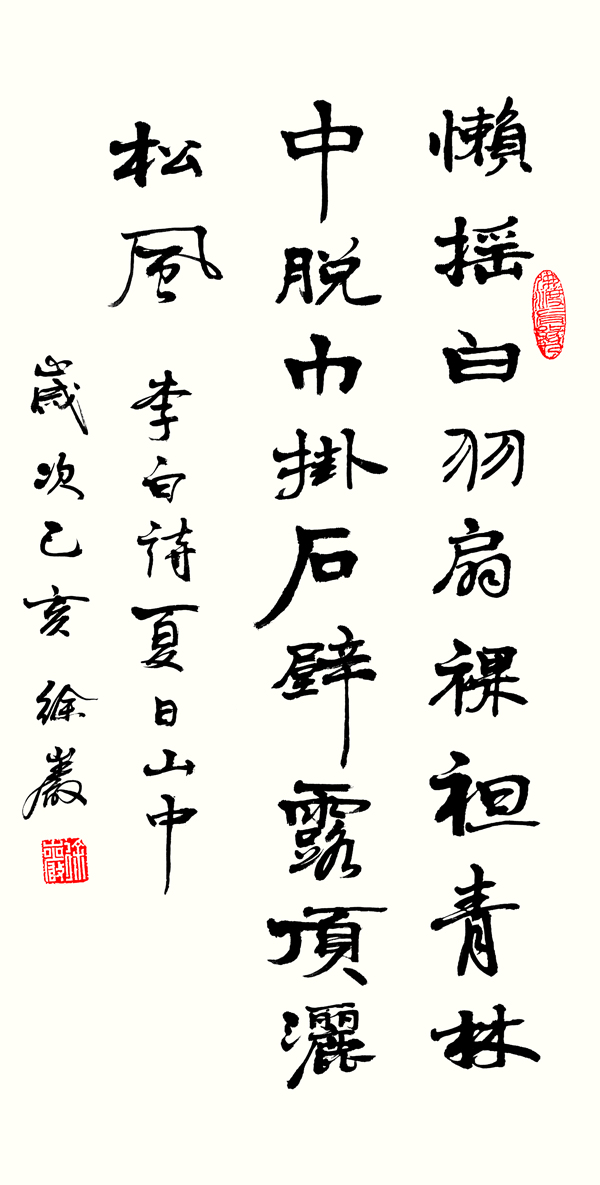 懶摇白羽扇裸袒青林
中脱巾掛石壁露頂灑
松風
李白詩夏日山中
歲次己亥 徐巖
徐巖